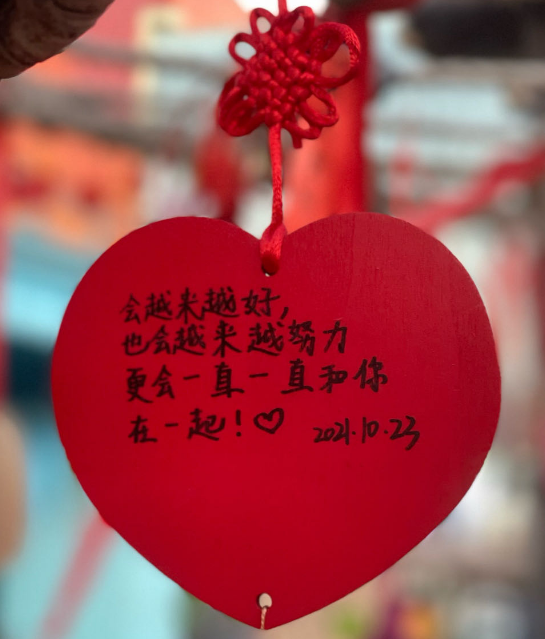 会越来越好,
也会越来越努力
更会一直一直和你
在一起！♡ 2021.10.23